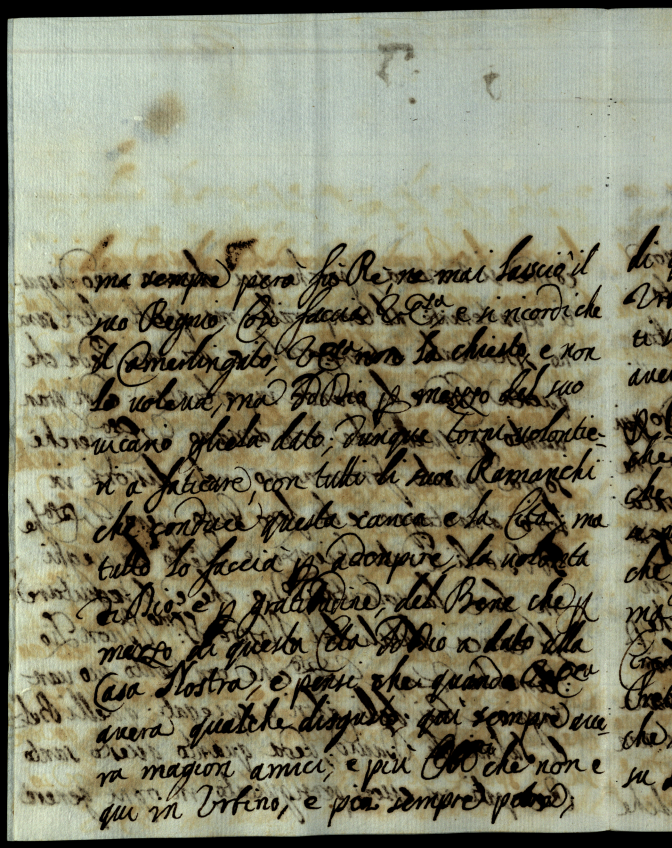 ma sempre però fù Re, ne mai lasciò il
suo Regnio Così faccia V. E. e si ricordi che
il Camerlingato, non la chiesto, e non
lo voleva, ma Iddio p mezzo del suo
vicario gliela dato, dunque torni volontie=
ri a faticare, con tutti li suoi Ramanchi
che conduce questa carica e la Cità, ma
tutto lo faccia p adonpire la volonta
di Dio e p gratitudine, del Bene che p
mezzo di questa Cita Iddio a dato alla
Casa Nostra, e pensi che quando
avera qualche disgusto qui sempre ave=
ra magiori amici, e più che non e
qui in Urbino, e poi sempre potra,
di
Vr
ti s
aver
che
che
che
ma
che
su